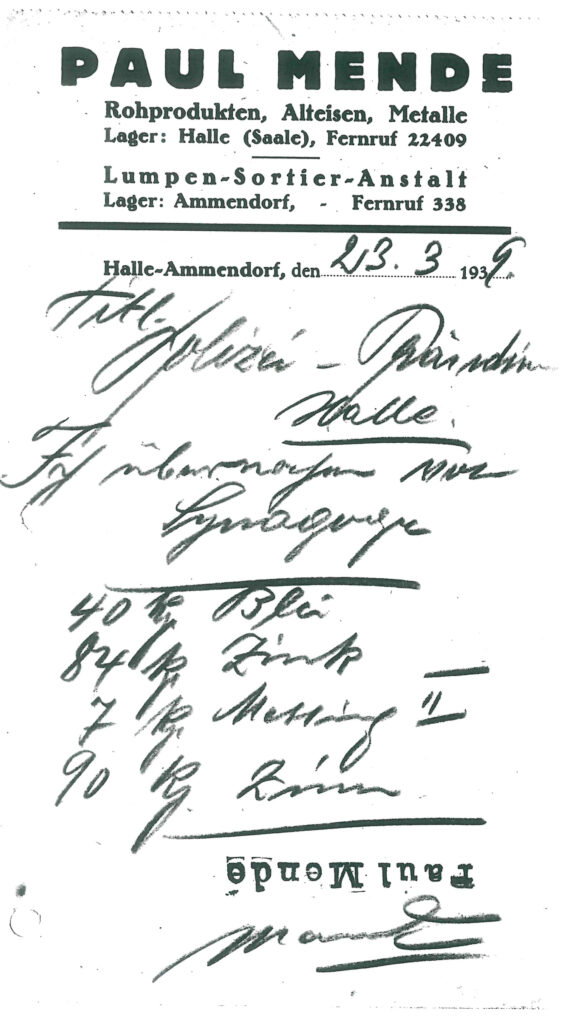 PAUL MENDE
Rohprodukten, Alteisen, Metalle
Lager: Halle (Saale), Fernruf 22409
Lumpen-Sortier-Anstalt
Lager: Ammendorf, - Fernruf 338
Halle-Ammendorf, den 23. 3 1939.
Titl. Polizei - Präsidium
Halle.
übernahm von
Synagoge
40 kg Blei
84 kg Zink
7 kg Messing II
90 kg Zinn
Paul Mende